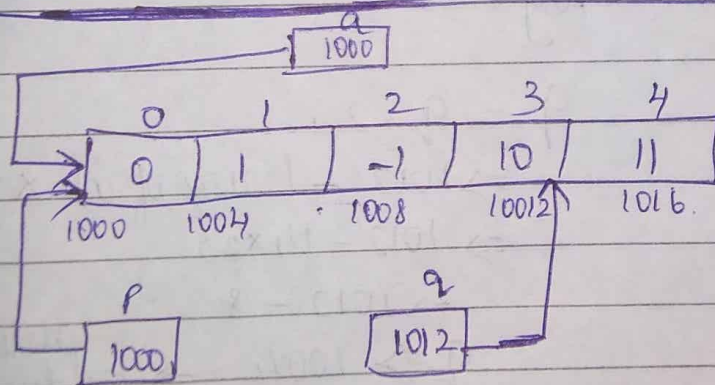 a
1000
0 1 2 3 4
0 1 -1 10 11
1000 1004 1008 10012 1016
p q
1000 1012